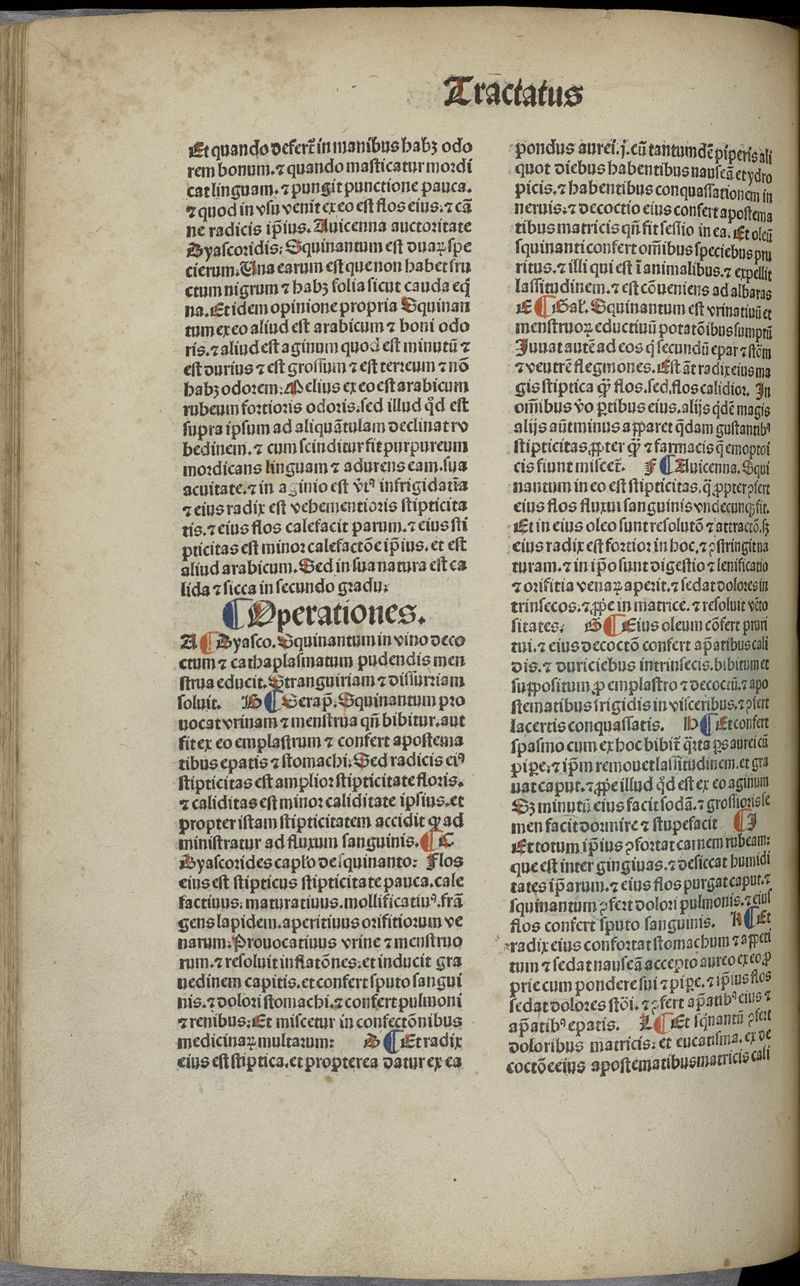 Tractatus
Et quando defert̃ in manibus habꝫ odo
rem bonum.⁊ quando masticatur mordi
cat linguam.⁊ pungit punctione pauca.
⁊ quod in vsu venit ex eo est flos eius.⁊ cã
ne radicis ip̃ius. Auicenna auctoritate
Dyascoridis: Squinantum est duaꝝ spe
cierum. Una earum est que non habet fru
ctum nigrum ⁊ habꝫ folia sicut cauda eq̃
na. Et idem opinione propria Squinan
tum ex eo aliud est arabicum ⁊ boni odo
ris.⁊ aliud est aginum quod est minutũ ⁊
est durius ⁊ est grossum ⁊ est terreum ⁊ nõ
habꝫ odorem: Melius ex eo est arabicum
rubeum fortioris odoris. sed illud qd̃ est
supra ipsum ad aliquãtulam declinat ru
bedinem.⁊ cum scinditur fit purpureum
mordicans linguam ⁊ adurens eam. sua
acuitate.⁊ in aginio est vt̃ꝰ infrigidatiua
⁊ eius radix est vehementioris stipticita
tis.⁊ eius flos calefacit parum.⁊ eius sti
pticitas est minor calefactõe ip̃ius. et est
aliud arabicum. Sed in sua natura est ca
lida ⁊ sicca in secundo gradu:
¶ Operationes.
A ¶ Dyasco. Squinantum in vino deco
ctum ⁊ cathaplasmatum pudendis men
strua educit. Stranguiriam ⁊ dissuriam
soluit. B ¶ Serap̃. Squinantum pro
uocat vrinam ⁊ menstrua qñ bibitur. aut
fit ex eo emplastrum ⁊ confert apostema
tibus epatis ⁊ stomachi: Sed radicis eiꝰ
stipticitas est amplior stipticitate floris.
⁊ caliditas est minor caliditate ipsius. et
propter istam stipticitatem accidit ꝙ ad
ministratur ad fluxum sanguinis. ¶ C
Dyascorides cap̃lo de squinanto: Flos
eius est stipticus stipticitate pauca. cale
factiuus: maturatiuus. mollificatiuꝰ. frã
gens lapidem. aperitiuus orifitiorum ve
narum: Prouocatiuus vrine ⁊ menstruo
rum.⁊ resoluit inflatões: et inducit gra
uedinem capitis. et confert sputo sangui
nis.⁊ dolori stomachi.⁊ confert pulmoni
⁊ renibus: Et miscetur in confectõnibus
medicinaꝝ multarum: D ¶ Et radix
eius est stiptica. et propterea datur ex ea
pondus aurei.j. cũ tantumdẽ piperis ali
quot diebus habentibus nauseã et ydro
picis.⁊ habentibus conquassationem in
neruis:⁊ decoctio eius confert apostema
tibus matricis qñ fit sessio in ea. Et oleũ
squinanti confert om̃ibus speciebus pru
ritus.⁊ illi qui est ĩ animalibus.⁊ expellit
lassitudinem.⁊ est cõueniens ad albaras
E ¶ Gal̃. Squinantum est vrinatiuũ et
menstruoꝝ eductiuũ potatõibus sumptũ
Juuat autẽ ad eos q̃ secundũ epar ⁊ stõm
⁊ ventrẽ flegmones. Est ãt radix eius ma
gis stiptica q̃ꝫ flos. sed. flos calidior. In
om̃ibus v̊o ꝑtibus eius. alijs qdẽ magis
alijs aũt minus apparet qdam gustantibꝰ
stipticitas. ꝓpter qꝫ ⁊ farmacis q̃ emoptoi
cis fiunt miscet̃. F ¶ Auicenna. Squi
nantum in eo est stipticitas. q̃ ꝓpter ꝯfert
eius flos fluxui sanguinis vndecunqꝫ fit.
Et in eius oleo sunt resolutõ ⁊ attractõ. sꝫ
eius radix est fortior in hoc.⁊ ꝯstringit na
turam.⁊ in ip̃o sunt digestio ⁊ lenificatio
⁊ orifitia venaꝝ aperit.⁊ sedat dolores in
trinsecos.⁊ ꝓp̃e in matrice.⁊ resoluit vẽto
sitates: G ¶ Eius oleum cõfert pruri
tui.⁊ eius decoctõ confert ap̃atibus cali
dis.⁊ duriciebus intrinsecis. bibitum et
suppositum ꝓ emplastro ⁊ decoctũ.⁊ apo
stematibus frigidis in visceribus.⁊ ꝯfert
lacertis conquassatis. H ¶ Et confert
spasmo cum ex hoc bibit̃ q̃rta ꝑs aurei cũ
pipe.⁊ ip̃m remouet lassitudinem. et gra
uat caput.⁊ ꝓp̃e illud qd̃ est ex eo aginum
Sꝫ minutũ eius facit sodã.⁊ grossioris se
men facit dormire ⁊ stupefacit ¶ I
Et totum ip̃ius ꝯfortat carnem rubeam:
que est inter gingiuas.⁊ desiccat humidi
tates ip̃arum.⁊ eius flos purgat caput.⁊
squinantum ꝯfert dolori pulmonis.⁊ eius
flos confert sputo sanguinis. K ¶ Et
radix eius confortat stomachum ⁊ appeti
tum ⁊ sedat nauseã accepto aureo ex eo. ꝓ
prie cum pondere sui ⁊ pipe.⁊ ip̃ius flos
sedat dolores stõi.⁊ ꝯfert ap̃atibꝰ eius ⁊
ap̃atibꝰ epatis. L ¶ Et sq̃nantũ ꝯfert
doloribus matricis: et eucatisma. ex de
coctõe eius apostematibus matricis cali